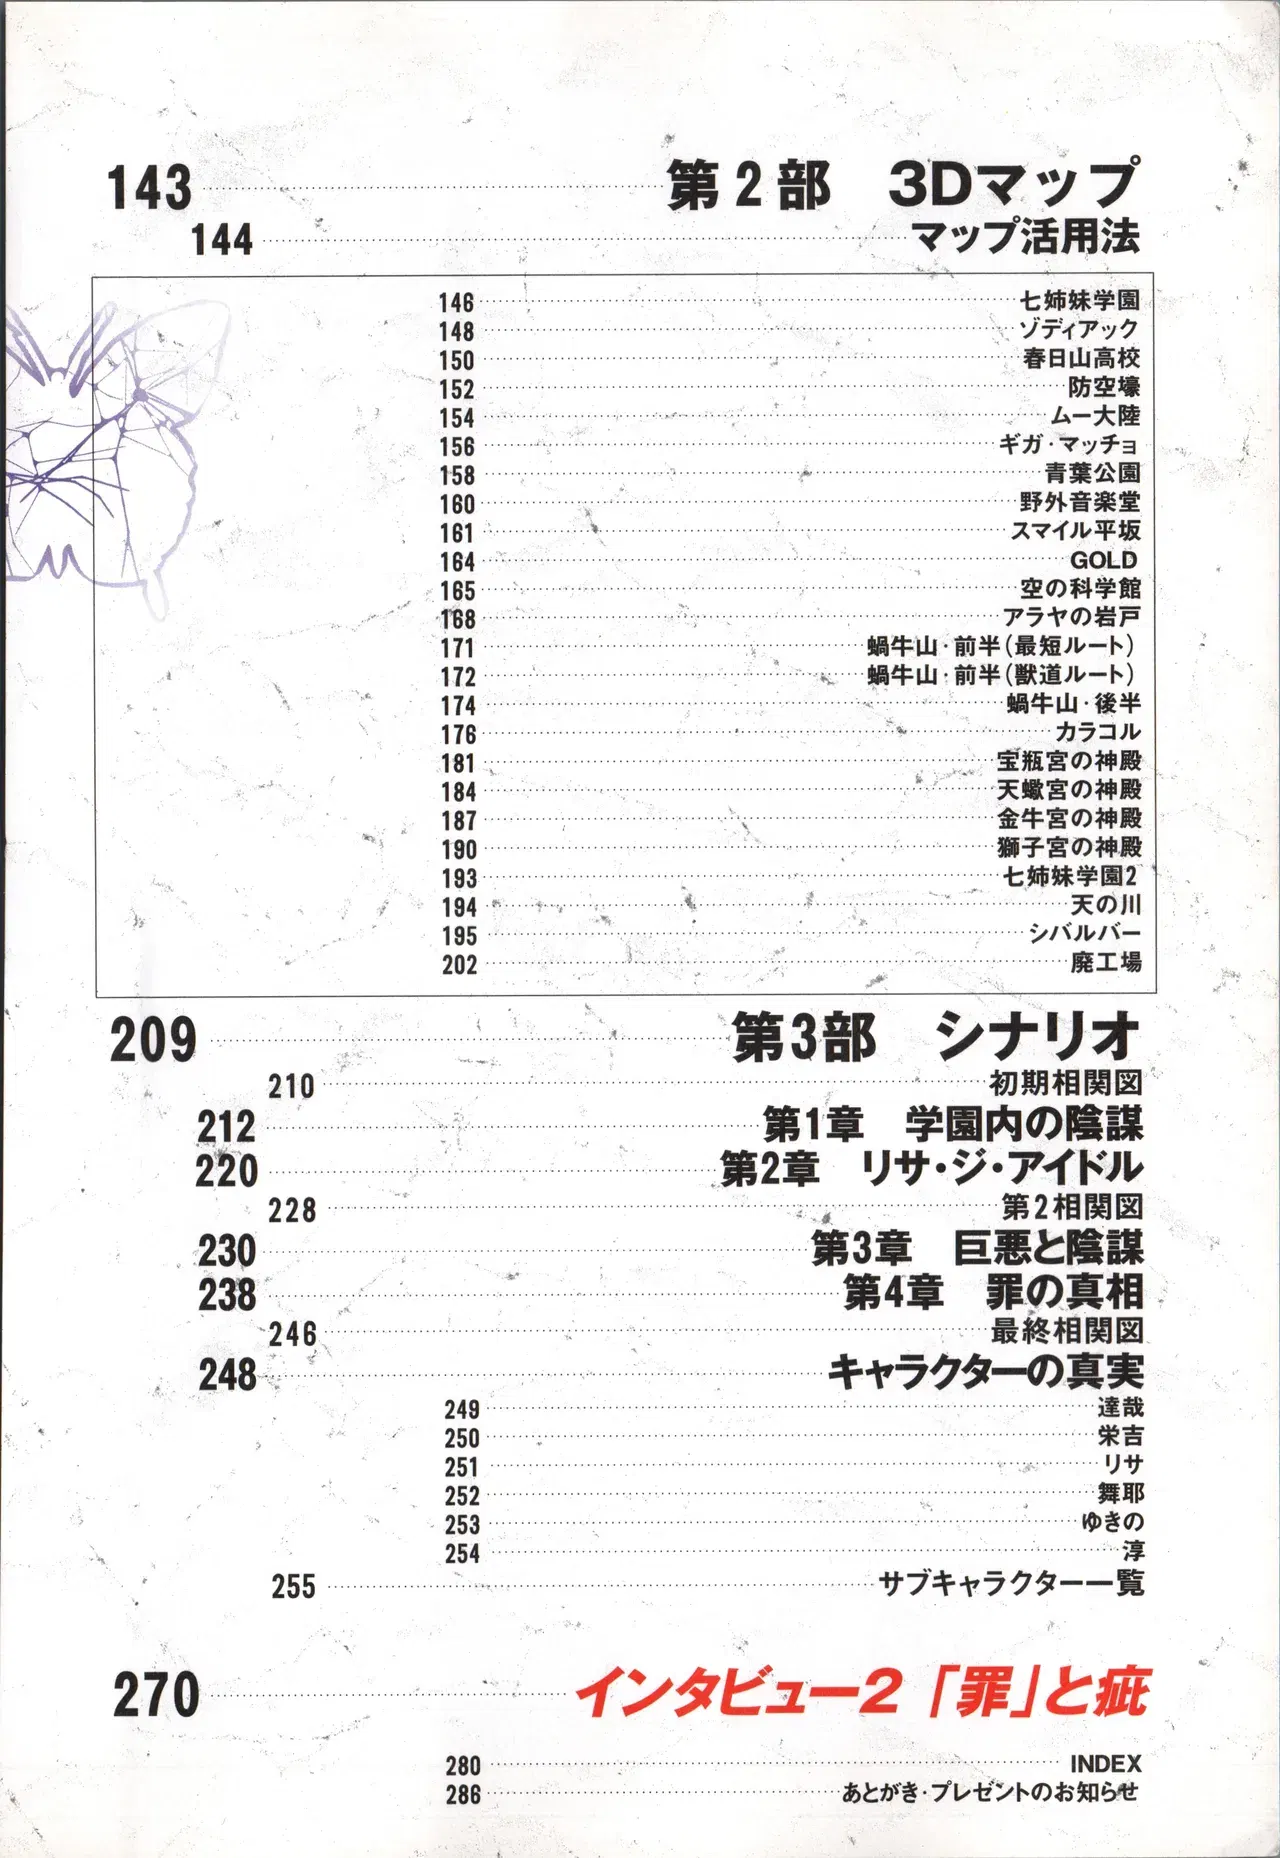 143 第2部 3Dマップ
144 マップ活用法
146 七姉妹学園
148 ゾディアック
150 春日山高校
152 防空壕
154 ムー大陸
156 ギガ・マッチョ
158 青葉公園
160 野外音楽堂
161 スマイル平坂
164 GOLD
165 空の科学館
168 アラヤの岩戸
171 蝸牛山・前半(最短ルート)
172 蝸牛山・前半(獣道ルート)
174 蝸牛山・後半
176 カラコル
181 宝瓶宮の神殿
184 天蠍宮の神殿
187 金牛宮の神殿
190 獅子宮の神殿
193 七姉妹学園2
194 天の川
195 シバルバー
202 廃工場
209 第3部 シナリオ
210 初期相関図
212 第1章 学園内の陰謀
220 第2章 リサ・ジ・アイドル
228 第2相関図
230 第3章 巨悪と陰謀
238 第4章 罪の真相
246 最終相関図
248 キャラクターの真実
249 達哉
250 栄吉
251 リサ
252 舞耶
253 ゆきの
254 淳
255 サブキャラクター一覧
270 インタビュー2「罪」と疵
280 INDEX
286 あとがき・プレゼントのお知らせ